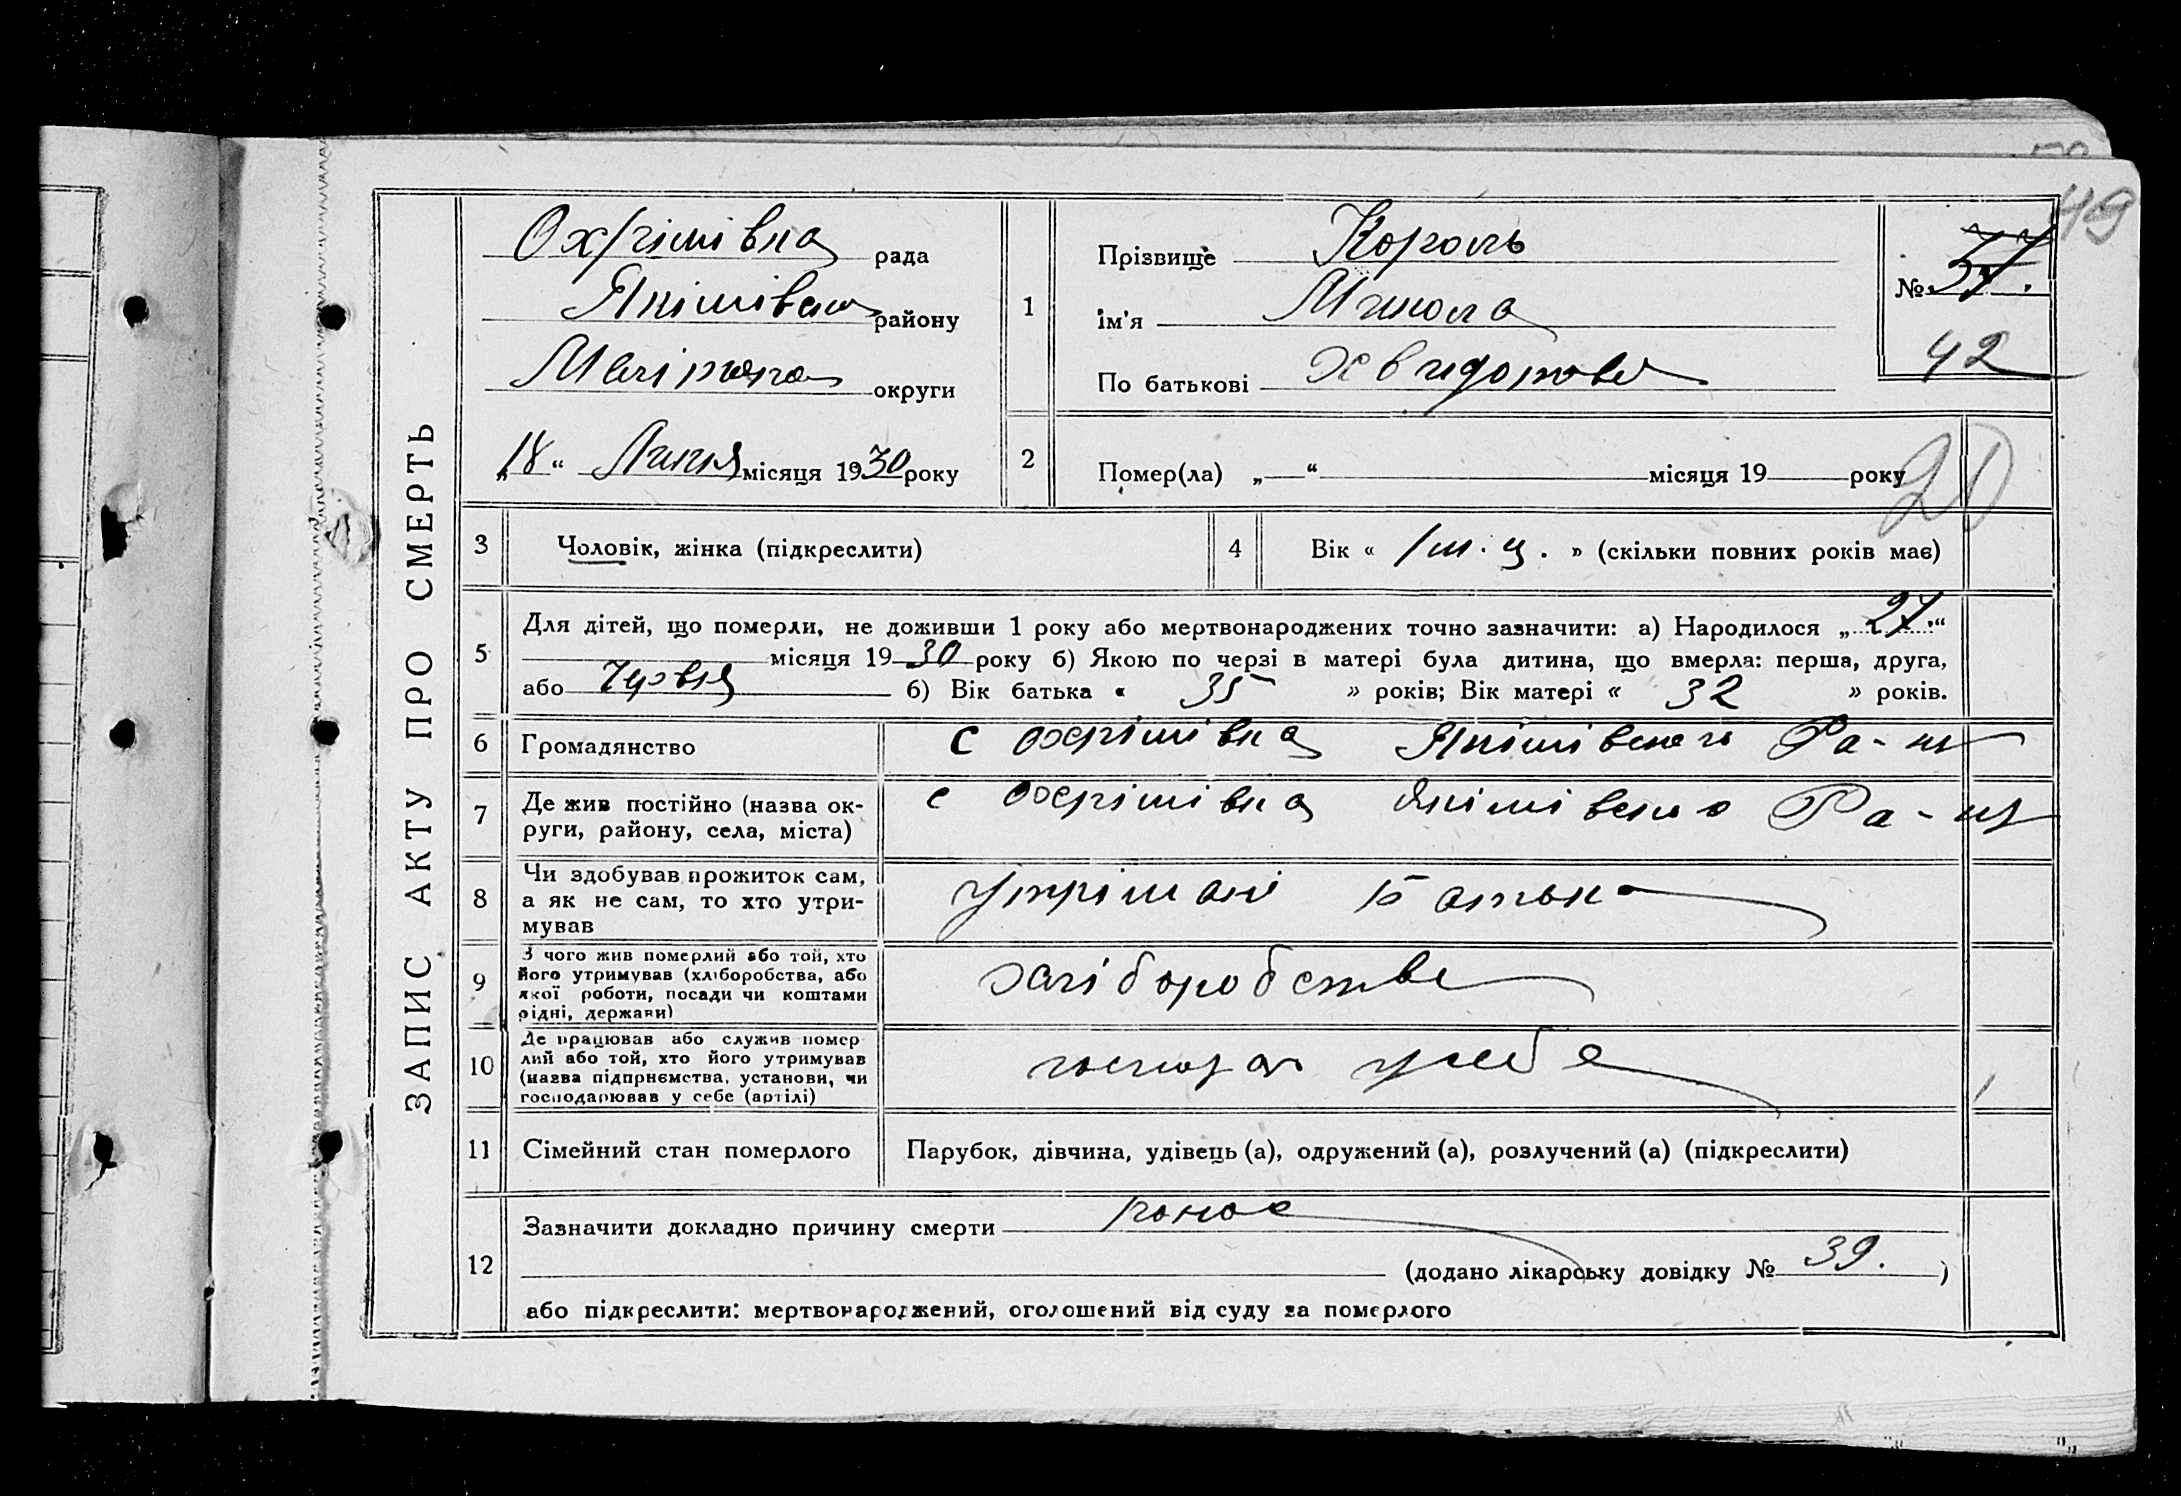 49
ЗАПИС АКТУ ПРО СМЕРТЬ
Охрімівка рада
району
округи
„18“ Липня місяця 1930 року
1
Прізвище Король
ім'я Микола
По батькові
№ 37.
42
2
Помер(ла) „ “ місяця 19 року
20
3
Чоловік, жінка (підкреслити)
4
Вік « 1 м.ц. » (скільки повних років має)
5
Для дітей, що померли, не доживши 1 року або мертвонароджених точно зазначити: а) Народилося „27.“
місяця 1930 року б) Якою по черзі в матері була дитина, що вмерла: перша, друга,
або Червня б) Вік батька « 35 » років; Вік матері « 32 » років.
6
Громадянство
с Охрімівка Якімівського Ра-ну
7
Де жив постійно (назва ок-
руги, району, села, міста)
с Охрімівка Якімівсько Ра-ну
8
Чи здобував прожиток сам,
а як не сам, то хто утри-
мував
утрімані батька
9
З чого жив померлий або той, хто
його утримував (хліборобства, або
якої роботи, посади чи коштами
рідні, держави)
хліборобства
10
Де працював або служив помер
лий або той, хто його утримував
(назва підприємства, установи, чи
господарював у себе (артілі)
господар усебе
11
Сімейний стан померлого
Парубок, дівчина, удівець (а), одружений (а), розлучений (а) (підкреслити)
12
Зазначити докладно причину смерти понос
(додано лікарську довідку № 39. )
або підкреслити: мертвонароджений, оголошений від суду за померлого